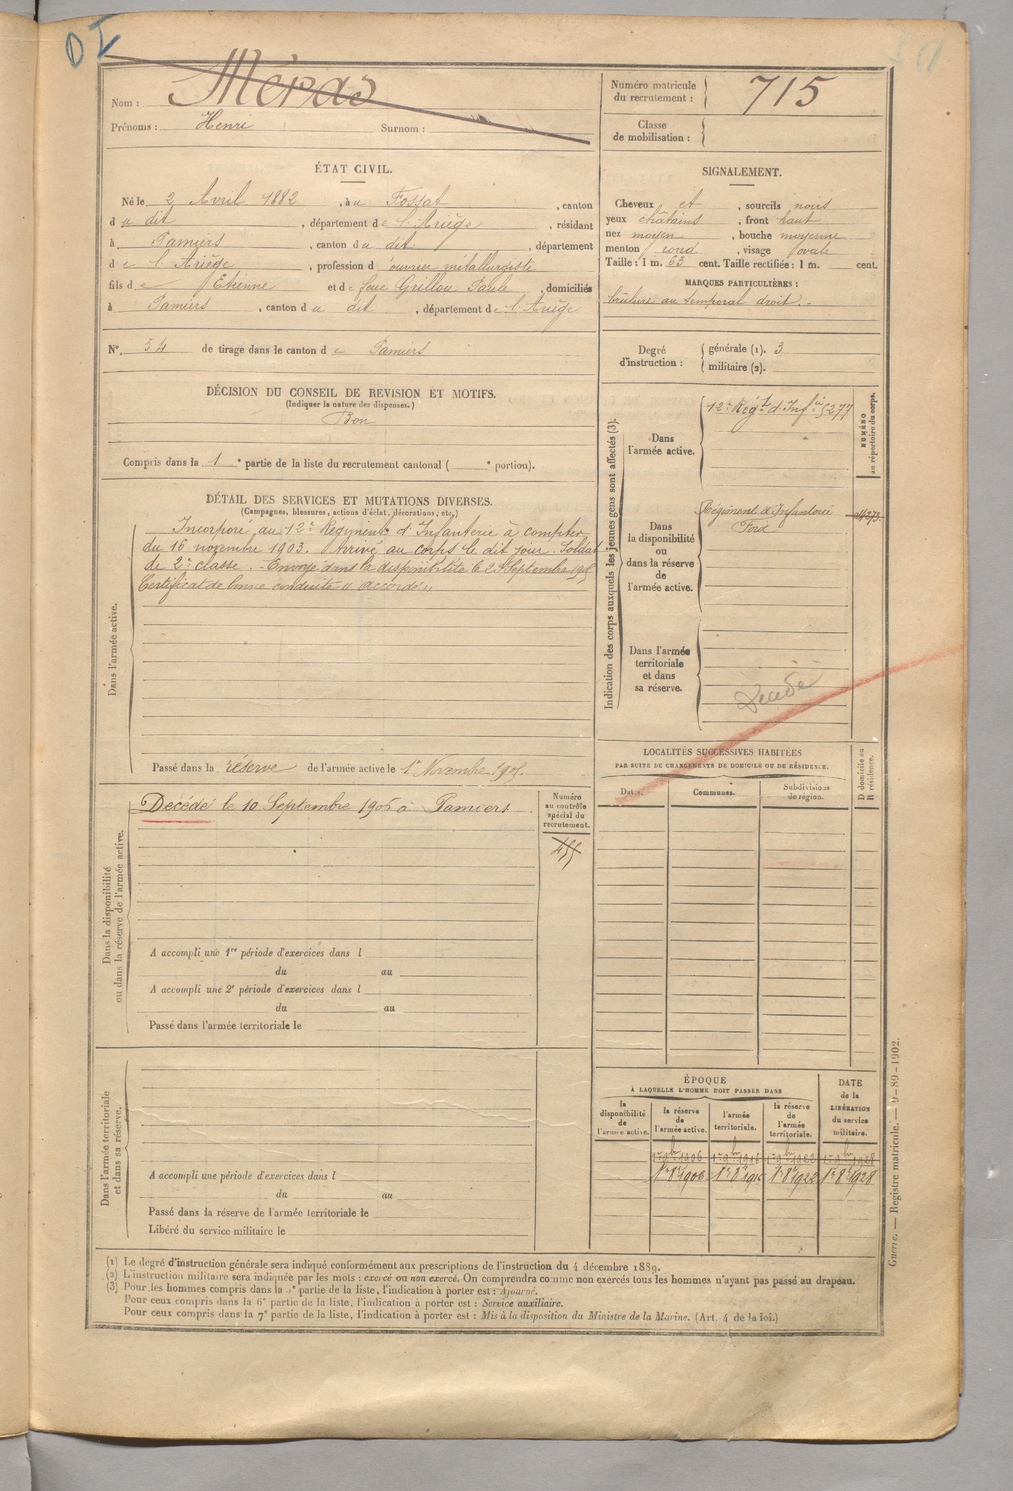 Nom : Méras
Prénoms : Henri Surnom :
Numéro matricule du recrutement : 715
Classe de mobilisation :
ÉTAT CIVIL.
Né le 2 Avril 1882, à u Fossat, canton
d u dit, département d e l'Ariège, résidant
à Pamiers, canton d u dit, département
d e l'Ariège, profession d ouvrier métallurgiste
fils d e Etienne et d e feue Grillou Paule, domiciliés
à Pamiers, canton d u dit, département d e l'Ariège
N° 54 de tirage dans le canton d e Pamiers
SIGNALEMENT.
Cheveux et, sourcils noirs
yeux châtains, front haut
nez moyen, bouche moyenne
menton rond, visage ovale
Taille : 1 m. 63 cent. Taille rectifiée : 1 m. cent.
MARQUES PARTICULIÈRES :
brûlure au temporal droit.-
Degré d'instruction : générale (1). 3
militaire (2).
DÉCISION DU CONSEIL DE REVISION ET MOTIFS.
(Indiquer la nature des dispenses.)
Bon
Compris dans la 1e partie de la liste du recrutement cantonal ( e portion).
DÉTAIL DES SERVICES ET MUTATIONS DIVERSES.
(Campagnes, blessures, actions d'éclat, décorations, etc.)
Dans l'armée active.
Incorporé au 12e Régiment d'Infanterie à compter
du 15 novembre 1903. Arrivé au corps le dit jour. Soldat
de 2e classe. - Envoyé dans la disponibilité le Septembre
Certificat de bonne conduite " accordé "
Passé dans la réserve de l'armée active le 1er Novembre
Indication des corps auxquels les jeunes gens sont affectés (3).
NUMÉRO au répertoire du corps.
Dans l'armée active.
12e Régt d'Infie 5277
Dans la disponibilité ou dans la réserve de l'armée active.
Régiment d'Infanterie
Dans l'armée territoriale et dans sa réserve.
Décédé
LOCALITÉS SUCCESSIVES HABITÉES
PAR SUITE DE CHANGEMENTS DE DOMICILE OU DE RÉSIDENCE.
Dates. Communes. Subdivisions de région. D domicile ou R résidence.
Dans la disponibilité ou dans la réserve de l'armée active.
Décédé le 10 Septembre à Pamiers
Numéro au contrôle spécial du recrutement.
455
A accompli une 1re période d'exercices dans l
du au
A accompli une 2e période d'exercices dans l
du au
Passé dans l'armée territoriale le
Dans l'armée territoriale et dans sa réserve.
A accompli une période d'exercices dans l
du au
Passé dans la réserve de l'armée territoriale le
Libéré du service militaire le
ÉPOQUE
À LAQUELLE L'HOMME DOIT PASSER DANS
la disponibilité de l'armée active. la réserve de l'armée active. l'armée territoriale. la réserve de l'armée territoriale.
DATE de la LIBÉRATION du service militaire.
(1) Le degré d'instruction générale sera indiqué conformément aux prescriptions de l'instruction du 4 décembre 1889.
(2) L'instruction militaire sera indiquée par les mots : exercé ou non exercé. On comprendra comme non exercés tous les hommes n'ayant pas passé au drapeau.
(3) Pour les hommes compris dans la 5e partie de la liste, l'indication à porter est : Ajourné.
Pour ceux compris dans la 6e partie de la liste, l'indication à porter est : Service auxiliaire.
Pour ceux compris dans la 7e partie de la liste, l'indication à porter est : Mis à la disposition du Ministre de la Marine. (Art. 4 de la loi.)
Guerre. — Registre matricule. — 9-89-1902.